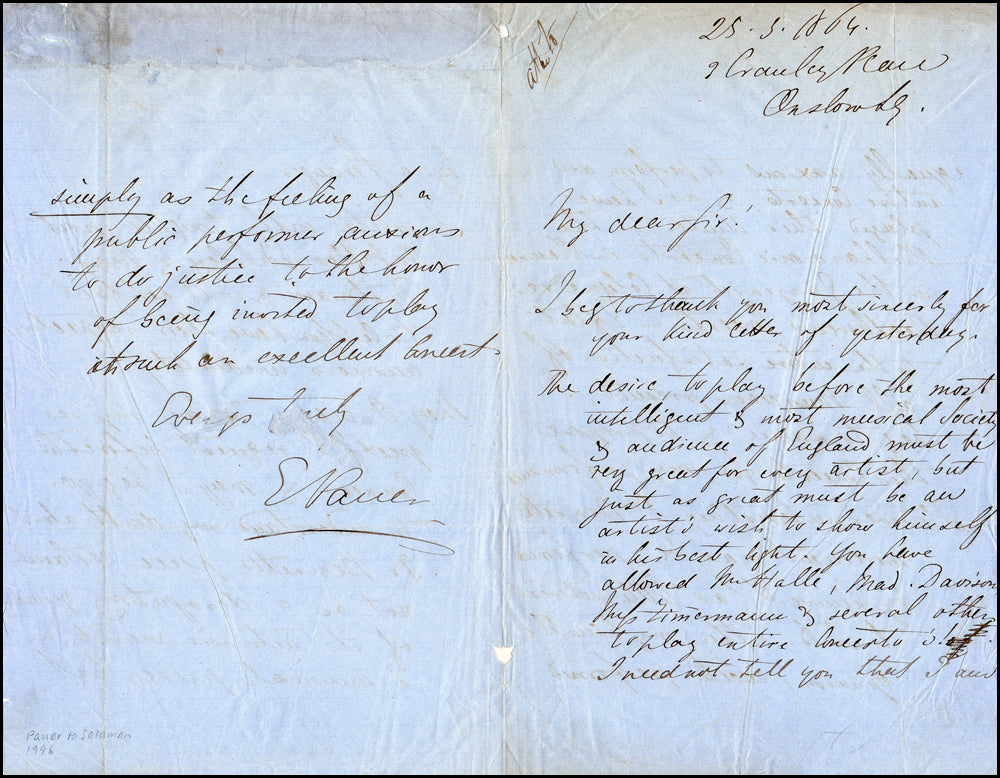 25. 5. 1864.
9 Cranley Place
Onslow Sq.
My dear Sir!
I beg to thank you most sincerely for
your kind letter of yesterday.
The desire, to play before the most
intelligent & most musical Society
& audience of England must be
very great for every artist, but
just as great must be an
artist's wish to show himself
in his best light. You have
allowed Mr Halle, Mad. Davison
Miss Zimermann & several others
to play entire Concerto's!
I need not tell you that I am
simply as the feeling of a
public performer anxious
to do justice to the honor
of being invited to play
at such an excellent Concert.
Every truly
E Pauer
Pauer to Salaman
1996